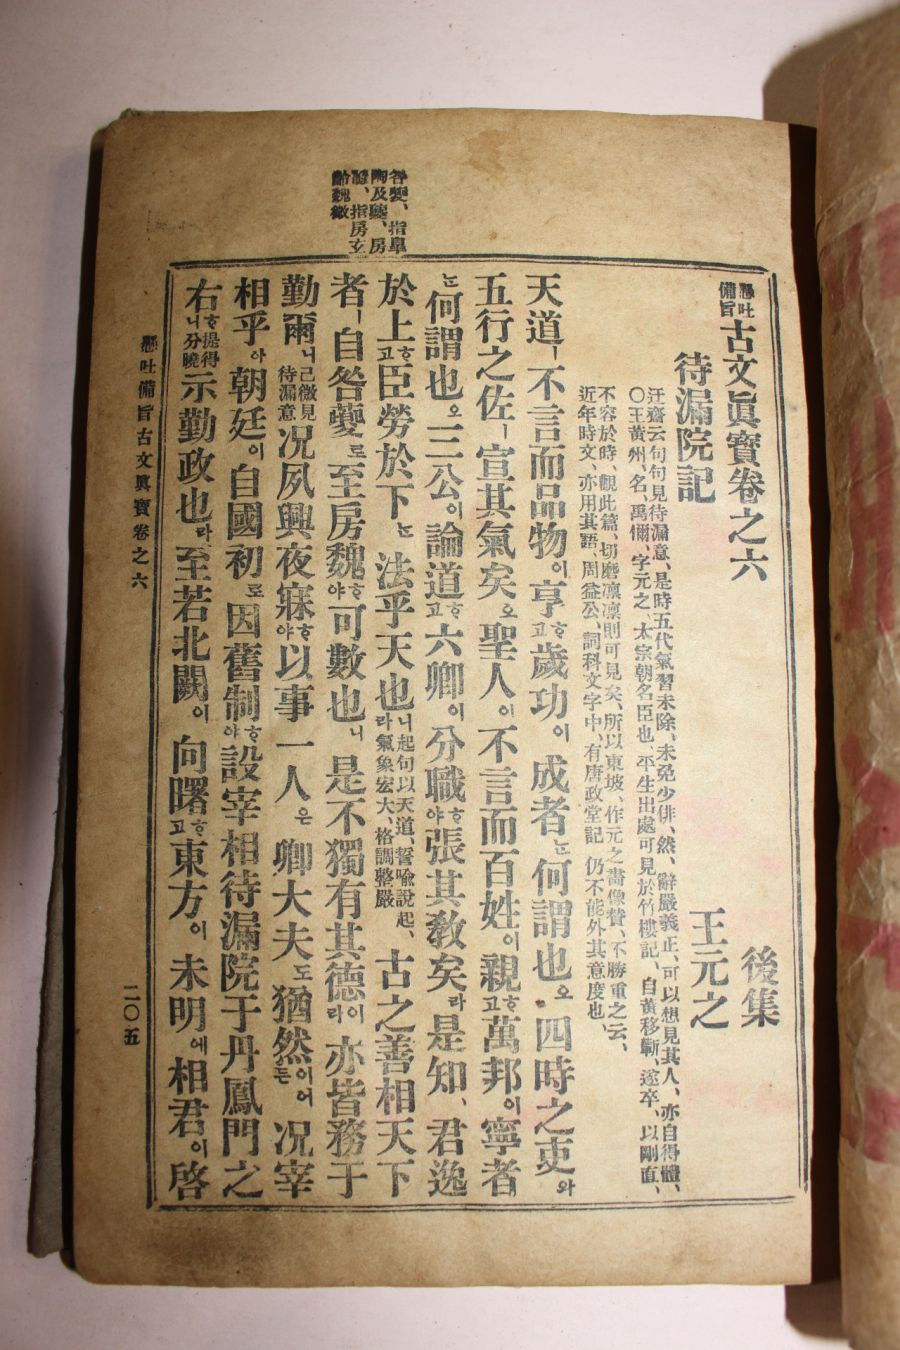 懸吐備旨古文眞寶卷之六 後集
待漏院記 王元之
迂齋云句句見待漏意、是時五代氣習未除、未免少俳、然、辭嚴義正、可以想見其人、亦自得體、
〇王黃州、名、禹偁、字元之 太宗朝名臣也、平生出處可見於竹樓記、自黃移蘄、遂卒、以剛直、
不容於時、觀此篇、切磨凛凛則可見矣、所以東坡、作元之畵像贊、不勝重之云、
近年時文、亦用其語、周益公、詞科文字中、有唐政堂記 仍不能外其意度也、
天道ㅣ不言而品物이亨고歲功이 成者何謂也오 四時之吏와
五行之佐ㅣ宣其氣矣오聖人이不言而百姓이親고萬邦이寧者
何謂也오三公이論道고六卿이 分職야張其敎矣라是知、君逸
於上고臣勞於下 法乎天也니라起句以天道、誓喩說起、氣象宏大、格調整嚴 古之善相天下
者ㅣ自咎夔로至房魏야可數也니 是不獨有其德이라 亦皆務于
勤爾니已微見待漏意况夙興夜寐야以事一人은 卿大夫도猶然이어든 况宰
相乎아朝廷이自國初로因舊制야設宰相待漏院于丹鳳門之
右니提得分曉示勤政也라至若北闕이 向曙고東方이 未明에相君이啓
咎夔、指皐
陶及夔、房
魏、指房玄
齡魏徵
懸吐備旨古文眞寶卷之六
二〇五